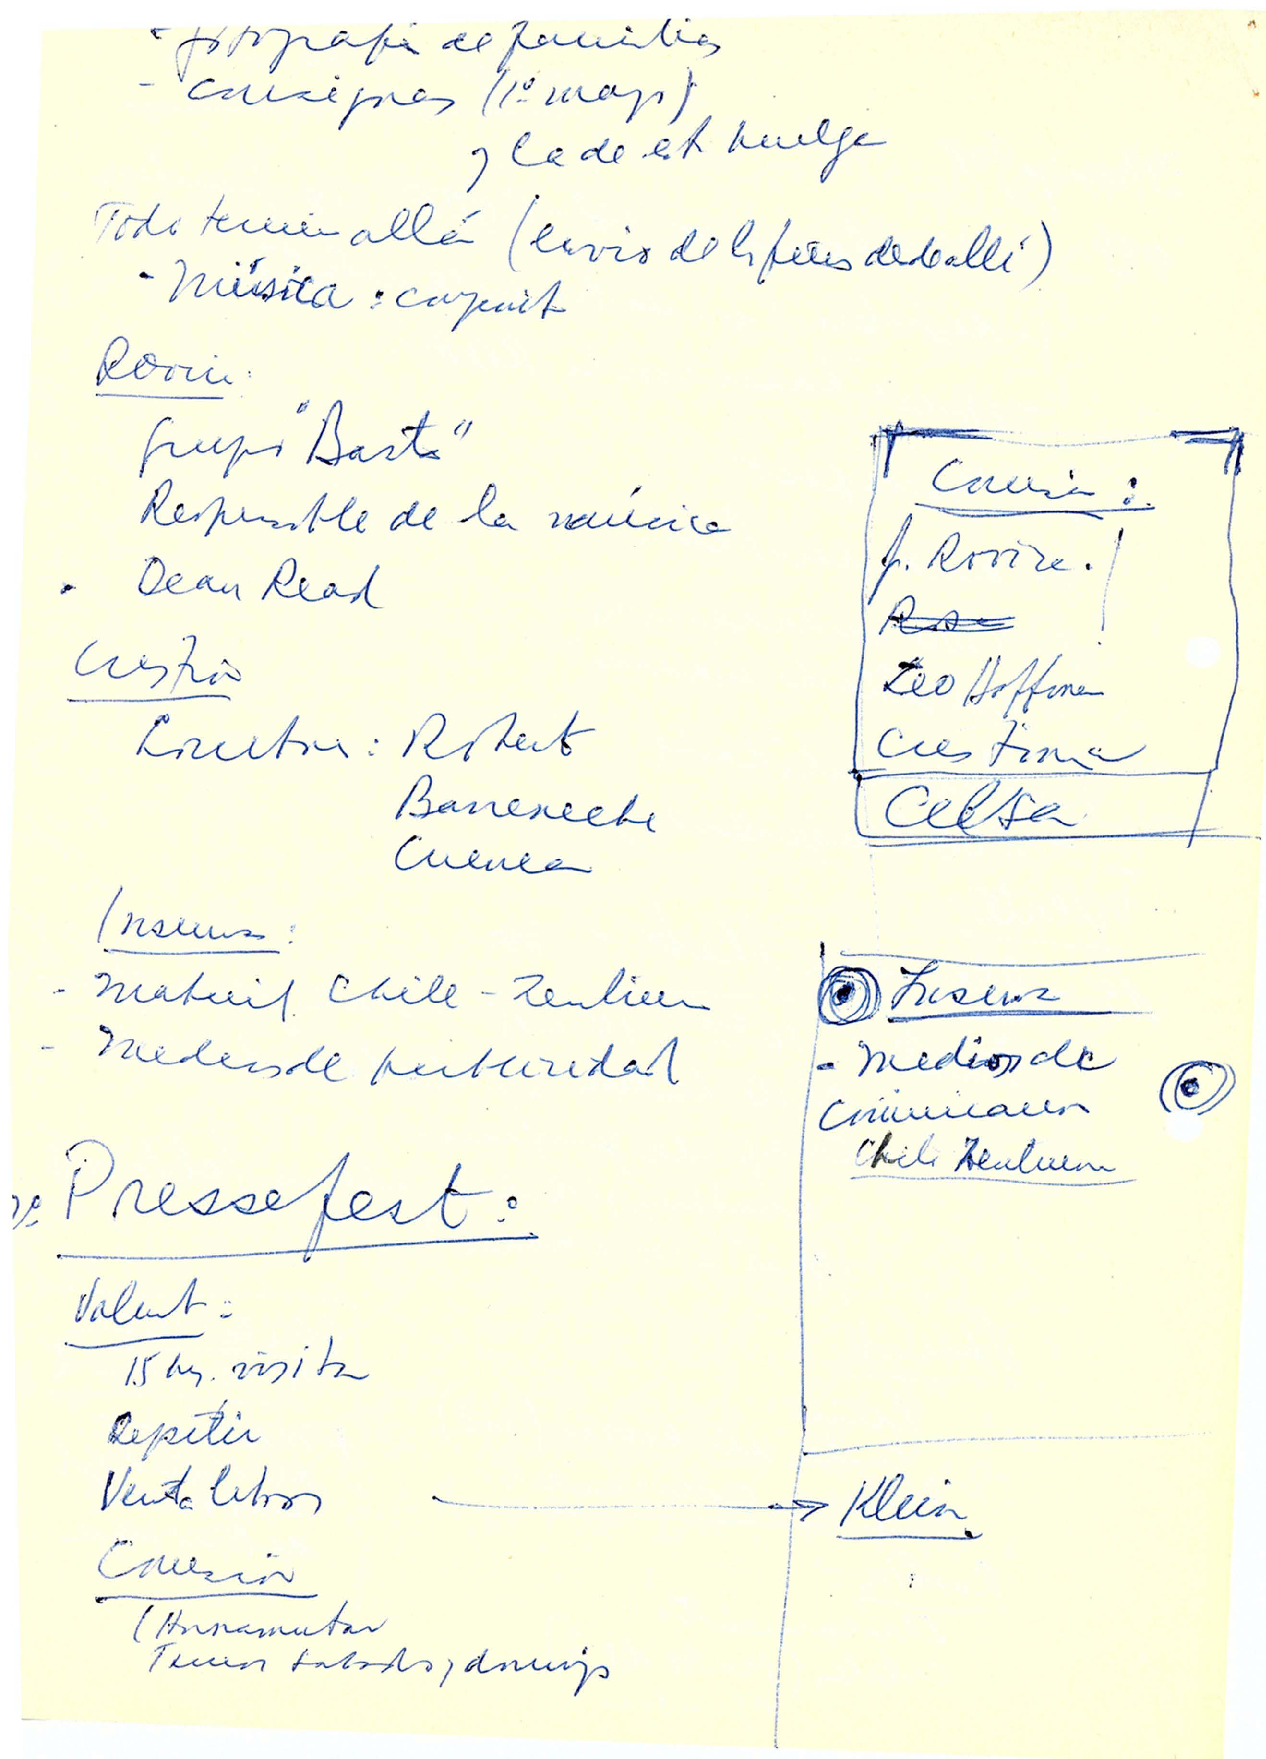 - fotografía de familias
- consignas (1º mayo)
y la de est huelga
Todo allá (envio de desde allí)
- Música:
Rovir:
grupo "Basta"
Responsable de la música
. Dean Read
Cristia
Locutor: Robert
Barreneche
Cuenca
Insunza:
- Material Chile-Zentrum
- Medios de publicidad
Pressefest:
Valent:
15 hs. visita
Repetir
Venta libros
Comisión
Turnos sabados y domingo
Comisión:
J. Rovira. !
Leo Hoffman
Cristina
Celsa
Insunza
- Medios de
Comunicación
Chile Zentrum
Klein